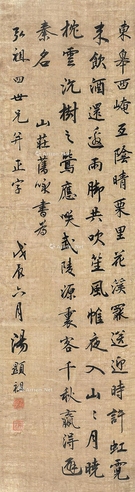 東皋西崦互陰晴栗里花溪累送迎時許虹霓
來飲酒還逅雨腳共吹笙風帷夜入山山月曉
枕雲沉樹樹鶯應笑武陵源裏客千秋贏得避
秦名
山莊舊詠書為
弘祖四世兄并正字
戊辰六月湯顯祖